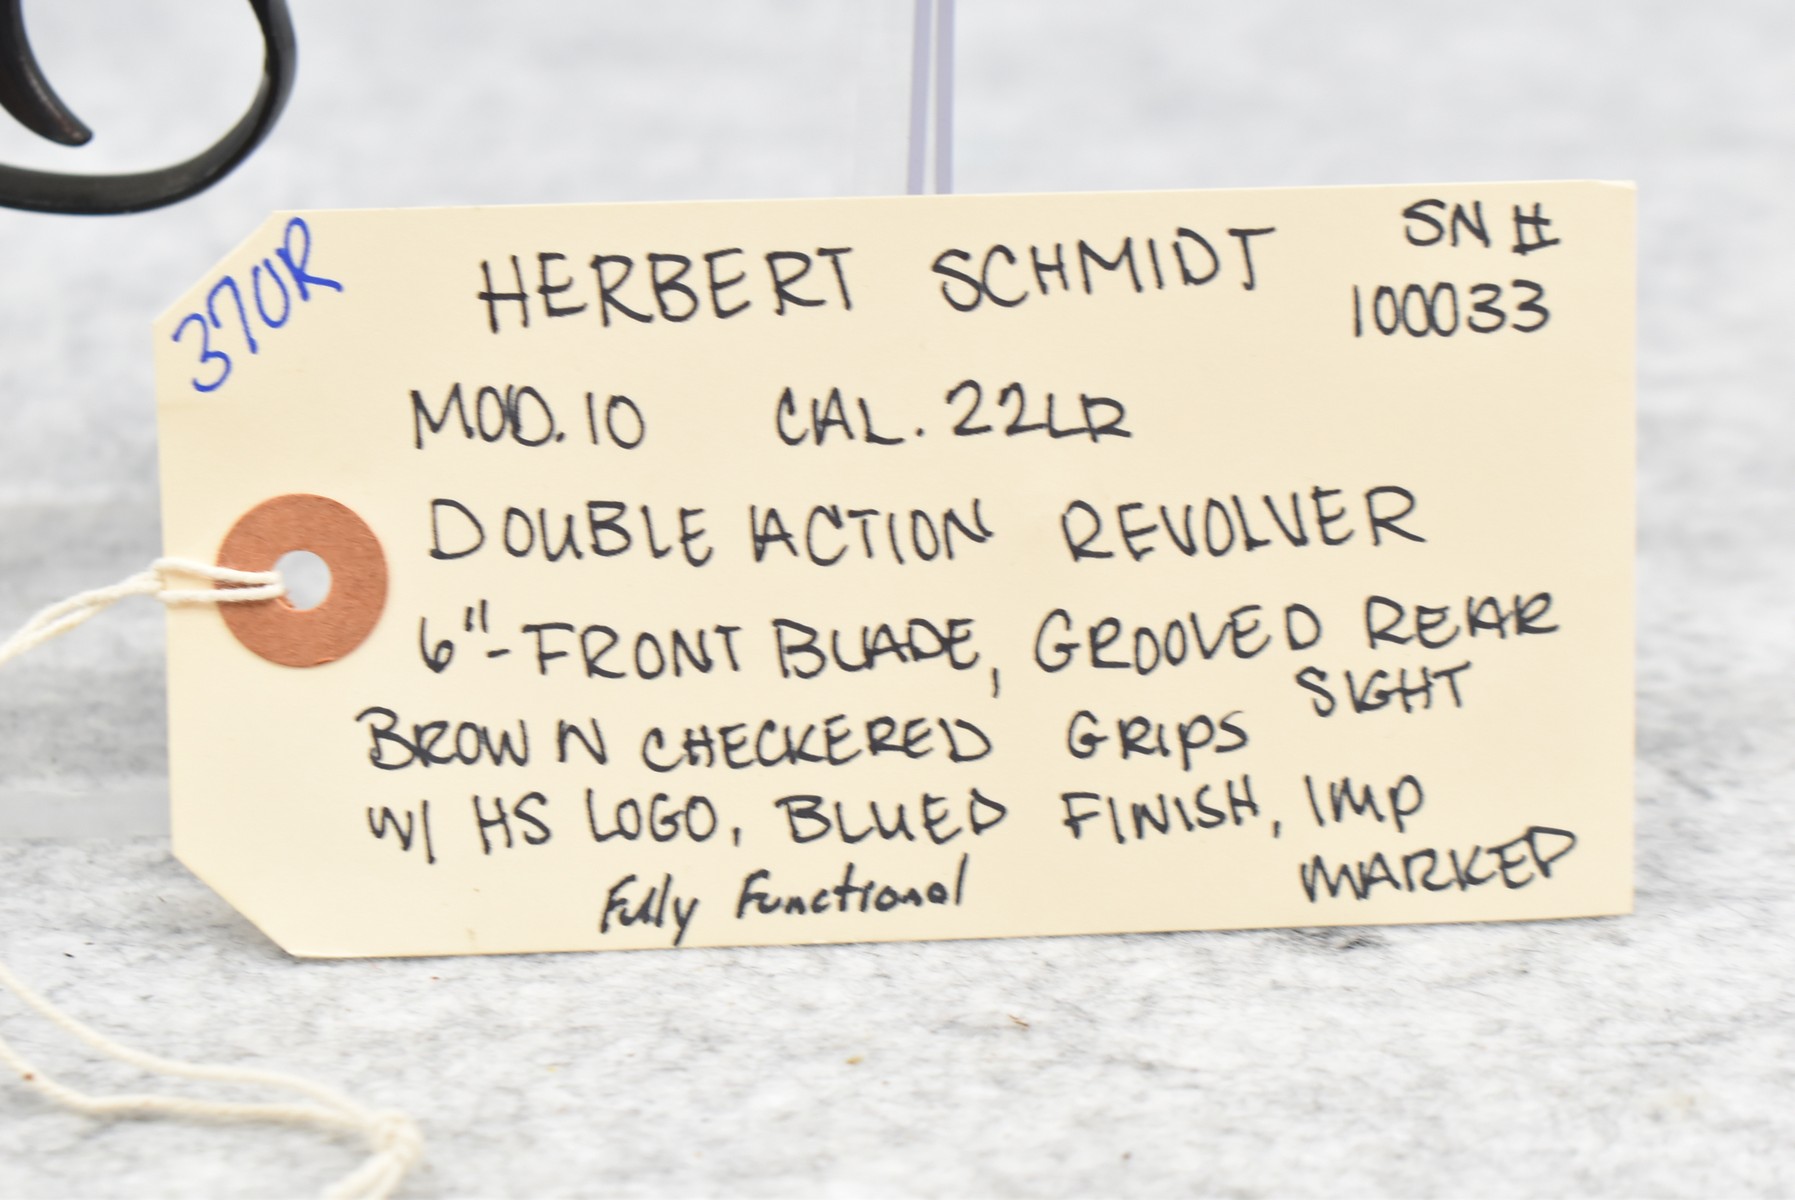 370R
HERBERT SCHMIDT
SN #
100033
MOD. 10 CAL. 22LR
DOUBLE ACTION REVOLVER
6"-FRONT BLADE, GROOVED REAR
SIGHT
BROWN CHECKERED GRIPS
W/ HS LOGO, BLUED FINISH, IMP
MARKED
Fully Functional